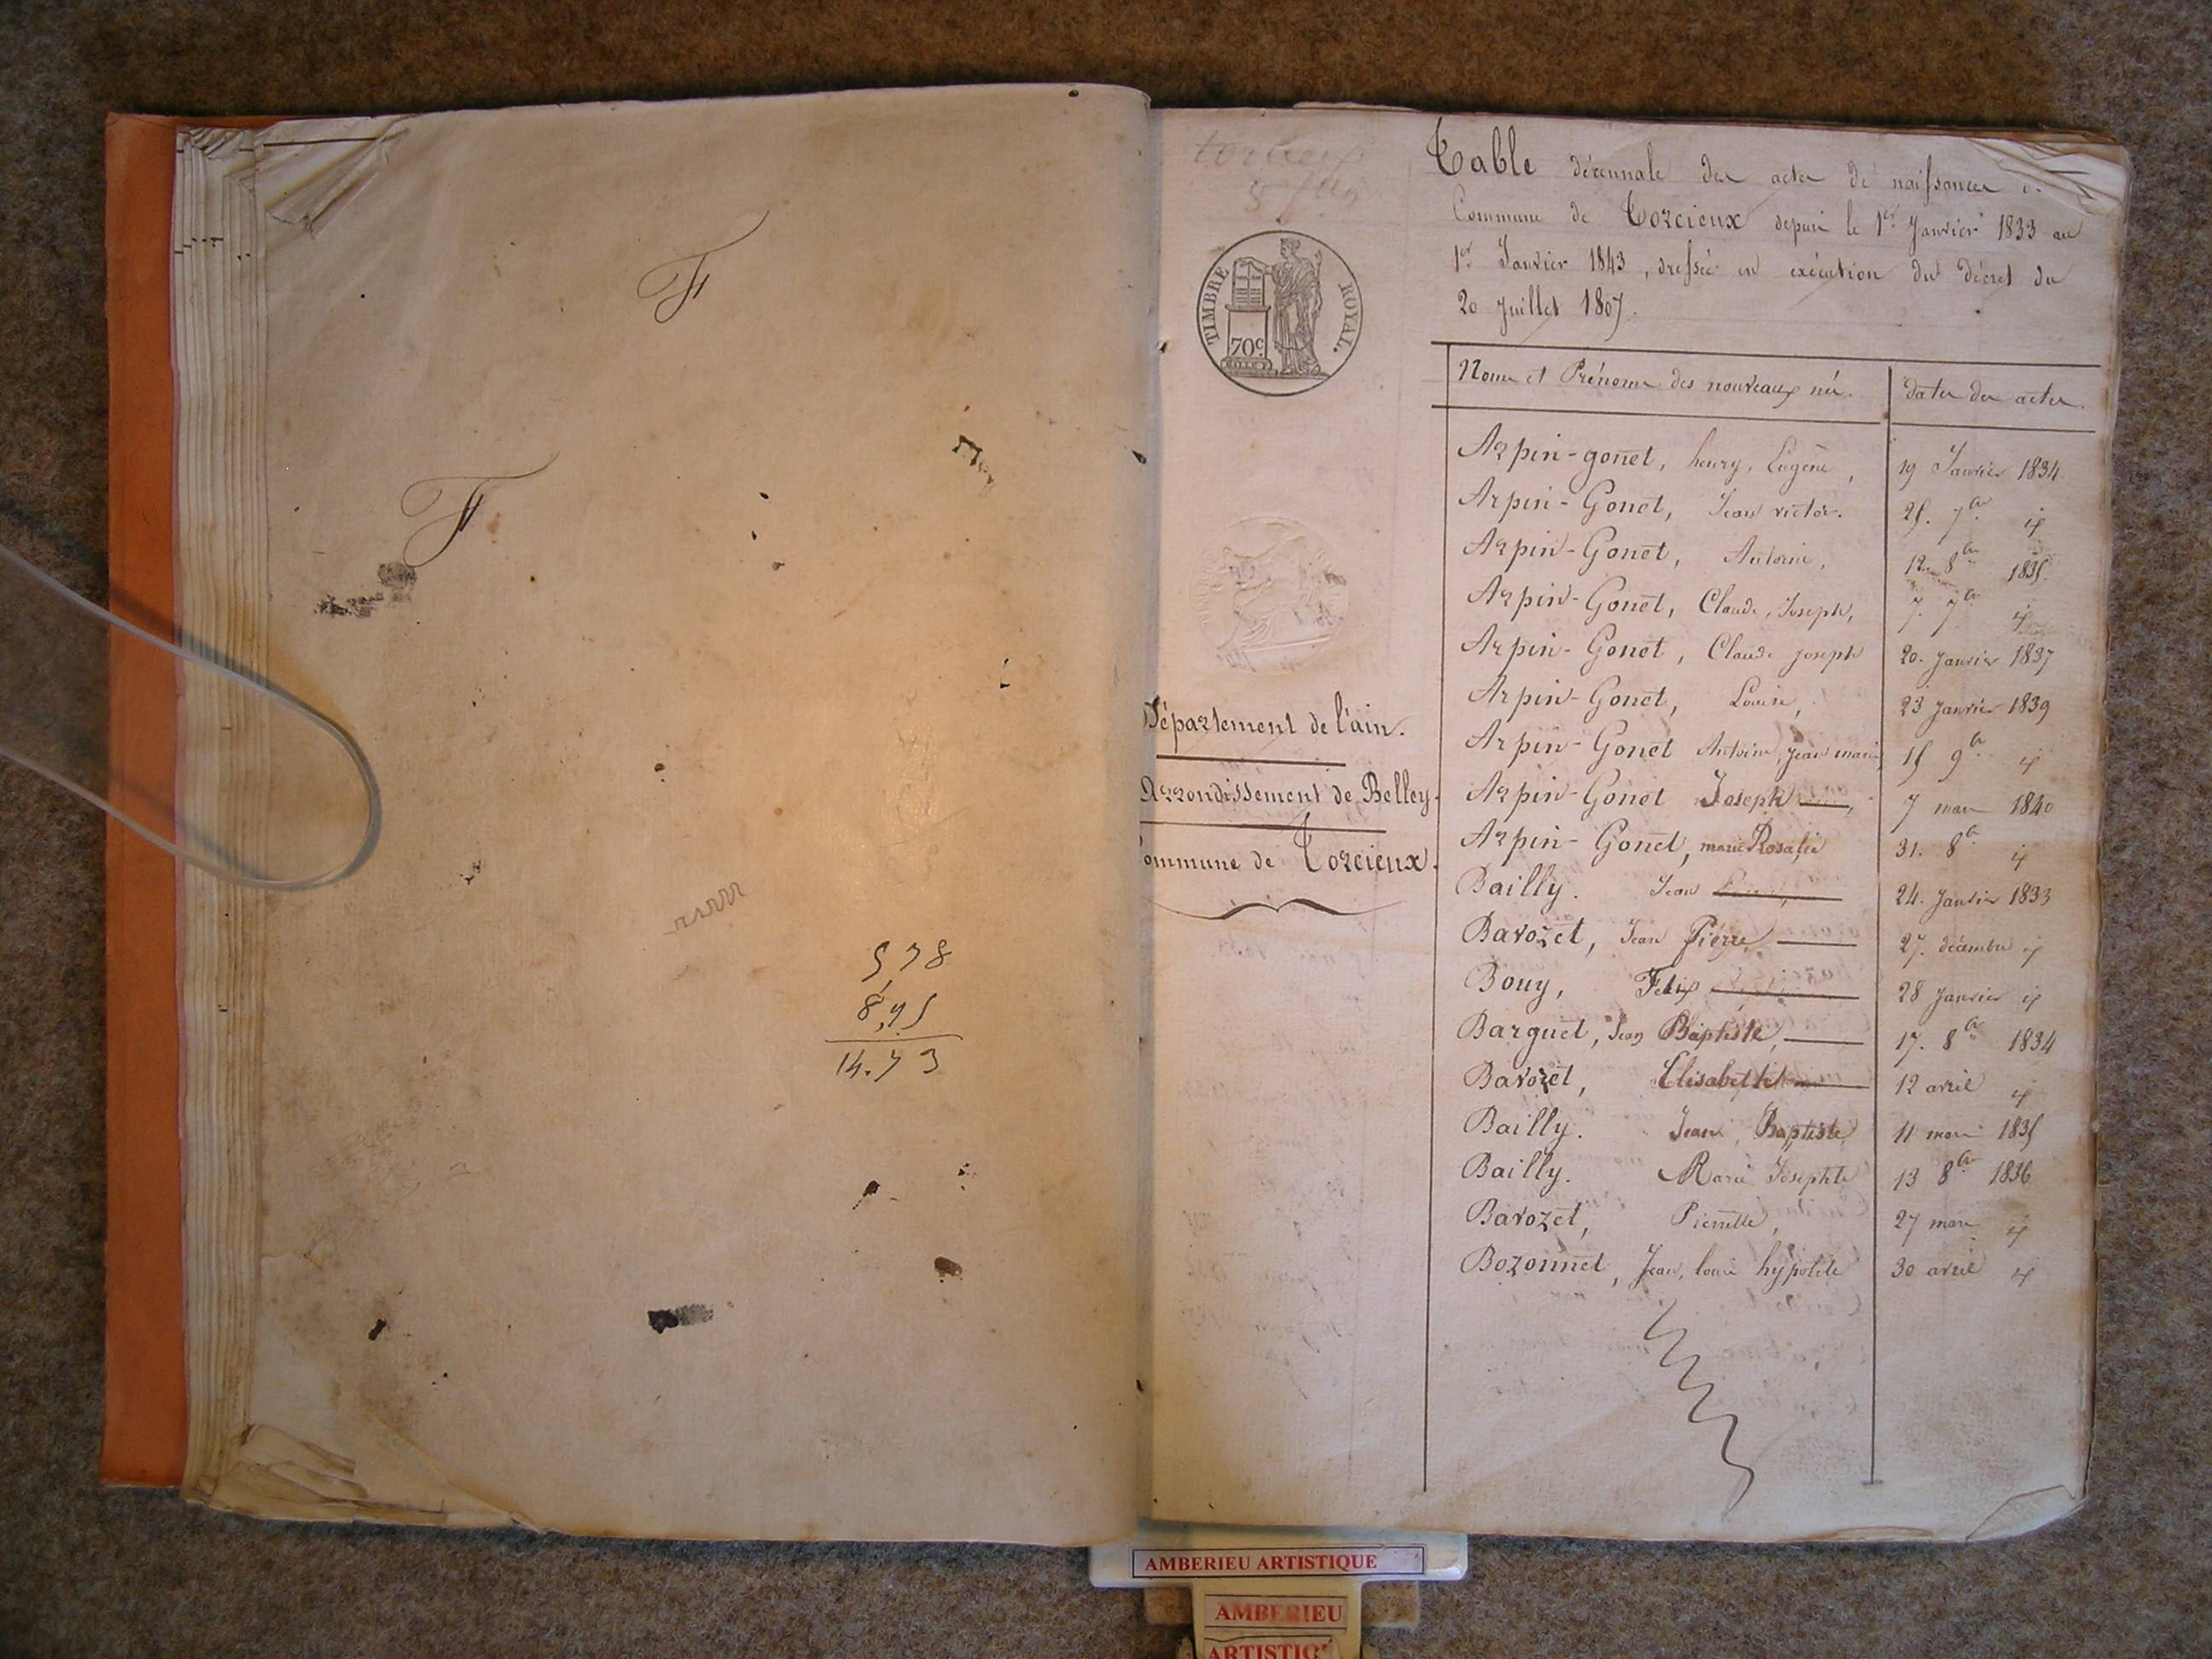 F
F
5 78
8,95
14.73
TIMBRE ROYAL.
70c
Département de l'ain.
Arrondissement de Belley.
Commune de Torcieux.
Table décennale des actes de naissances
Commune de Torcieux depuis le 1er Janvier 1833 au
1er Janvier 1843, dressée en exécution du décret du
20 Juillet 1807.
Noms et Prénoms des nouveaux nés. dates des actes.
Arpin-gonet, henry, Eugène, 19 Janvier 1834
Arpin-Gonet, Jean victor. 25. 7bre id
Arpin-Gonet, Antoine, 12 8bre 1835
Arpin-Gonet, Claude, Joseph, 7bre id
Arpin-Gonet, Claude joseph 20. janvier 1837
Arpin-Gonet, Louise, 23 janvier 1839
Arpin-Gonet Antoine, jean marie 15 9bre id
Arpin-Gonet Joseph, 7 mars 1840
Arpin-Gonet, marie Rosalie 31. 8bre id
Bailly. Jean 24. janvier 1833
Bavozet, Jean Pierre 27. décembre id
Bouy, Felix 28 janvier id
Barguet, Jean Baptiste, 17. 8bre 1834
Bavozet, Elisabeth 12 avril id
Bailly. Jean Baptiste 11 mars 1835
Bailly. Marie Josephte 13 8bre 1836
Bavozet, Pierrette, 27 mars id
Bozonnet, Jean, louis hypolite 30 avril id
AMBERIEU ARTISTIQUE
AMBERIEU